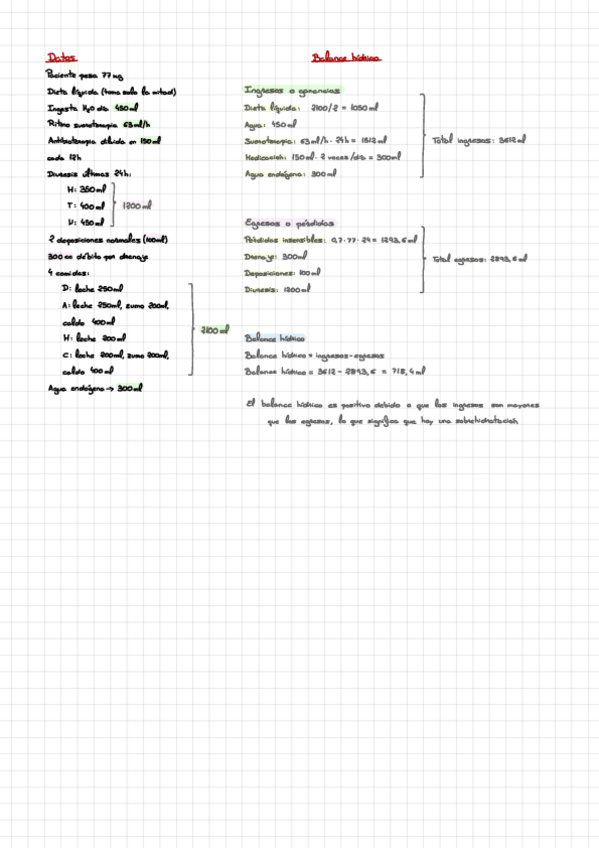 Datos
Paciente pesa 77 kg
Dieta líquida (toma solo la mitad)
Ingesta H₂O día 450ml
Ritmo sueroterapia 63ml/h
Antibioterapia diluida en 150ml
cada 12h
Diuresis últimas 24h:
M: 350ml
T: 400ml
N: 450ml
1200ml
2 deposiciones normales (100ml)
300 cc débito por drenaje
4 comidas:
D: leche 250ml
A: leche 250ml, zumo 200ml,
caldo 400ml
M: leche 200ml
C: leche 200ml, zumo 200ml,
caldo 400ml
2100ml
Agua endógena → 300ml
Balance hídrico
Ingresos o ganancias
Dieta líquida: 2100/2 = 1050ml
Agua: 450ml
Sueroterapia: 63ml/h · 24h = 1512ml
Medicación: 150ml · 2 veces/día = 300ml
Agua endógena: 300ml
Total ingresos: 3612ml
Egresos o pérdidas
Pérdidas insensibles: 0,7·77·24 = 1293,6ml
Drenaje: 300ml
Deposiciones: 100ml
Diuresis: 1200ml
Total egresos: 2893,6ml
Balance hídrico
Balance hídrico = ingresos-egresos
Balance hídrico = 3612 - 2893,6 = 718,4ml
El balance hídrico es positivo debido a que los ingresos son mayores
que los egresos, lo que significa que hay una sobrehidratación